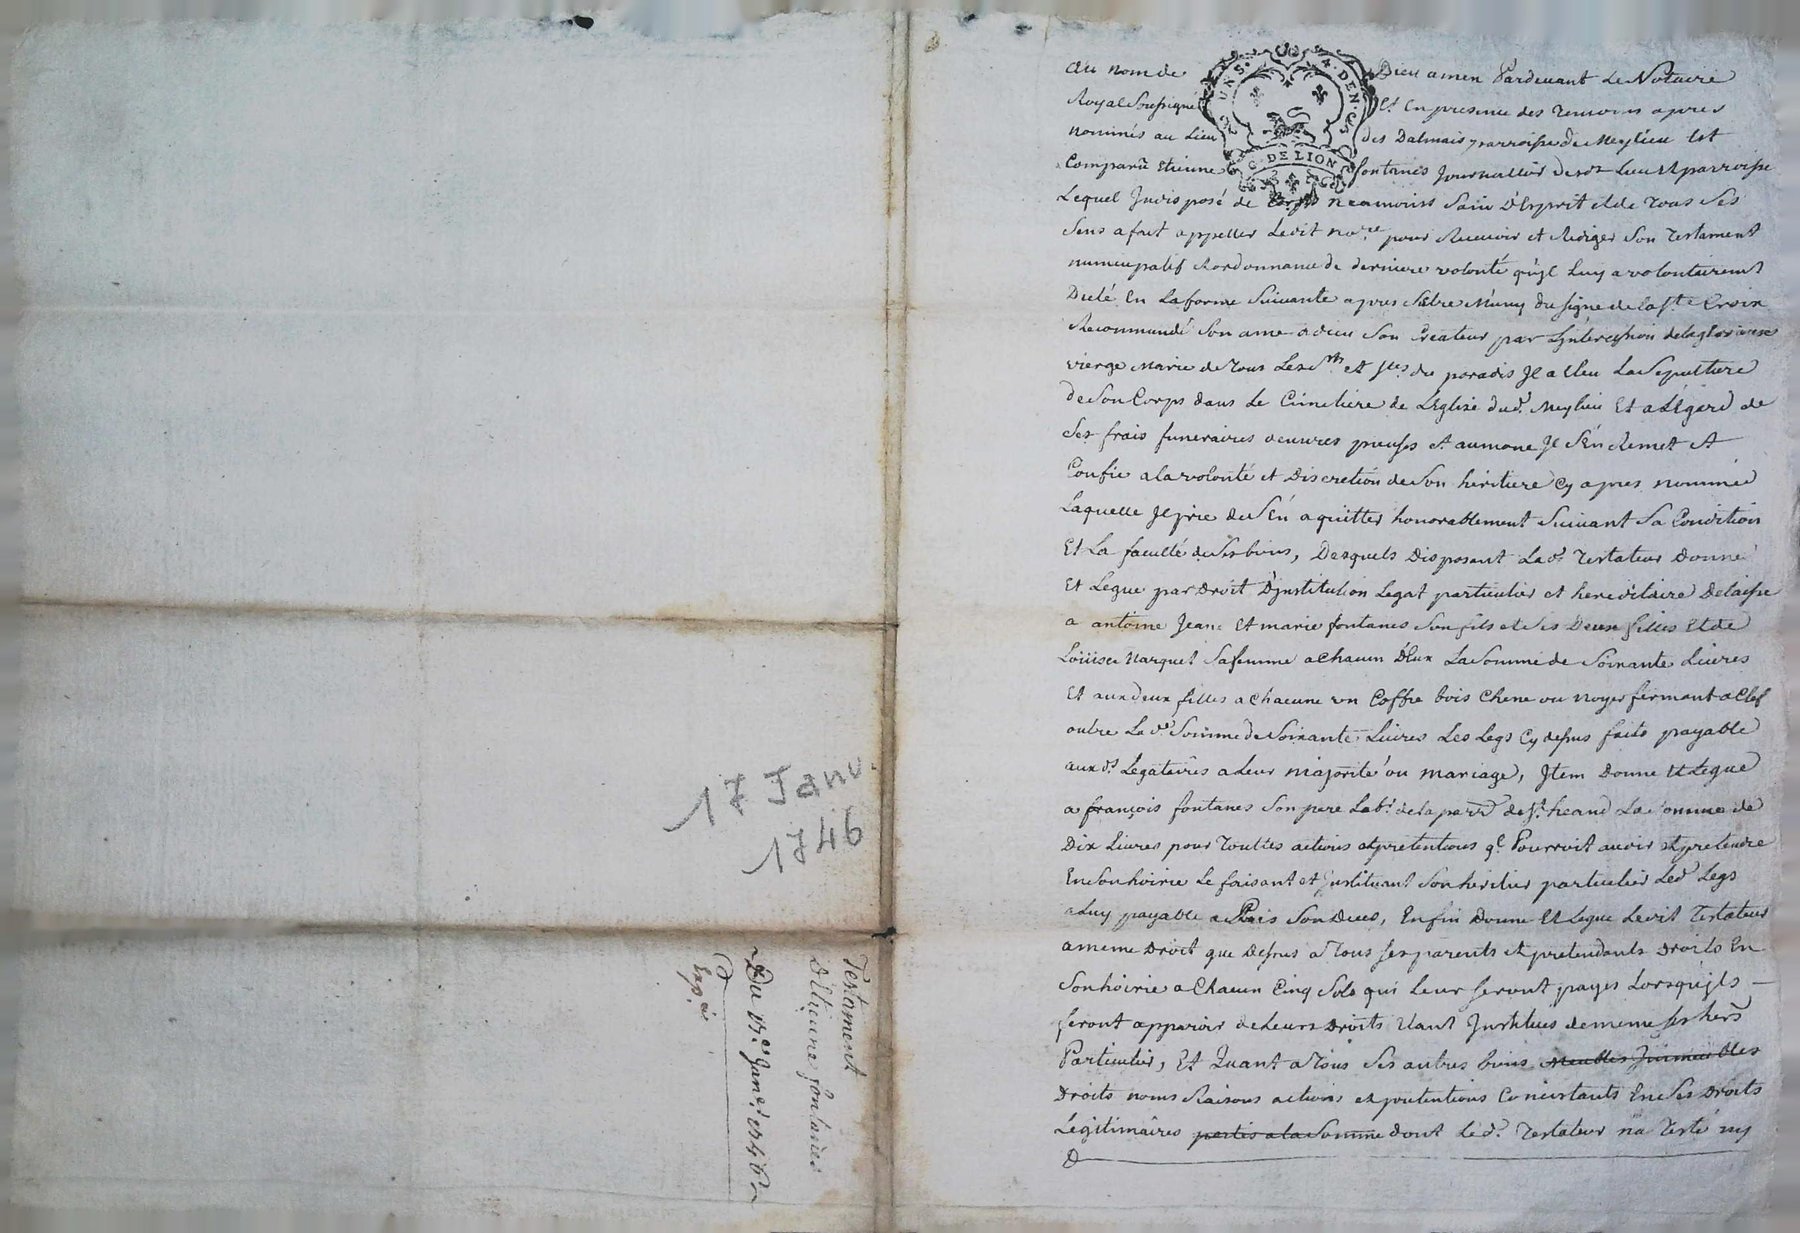 17 Janv.
1746
Testament
D'Etienne fontanes
Du 17e Janer 1746
Exp é
UNS. 4. DEN.
G. DE LION
Au nom de Dieu amen Pardevant Le Notaire
Royal Soussigné Et En presence des Temoins apres
nommés au Lieu des Dalmais parroisse de Meylieu Est
Comparu Etienne fontanes Journallier dudt Lieu et parroisse
Lequel Indisposé de Corps neamoins Sain d'Esprit et de Tous Ses
Sens a fait appeller Ledit nore pour Recevoir et Rediger Son Testament
nuncupatif & ordonnance de derniere volonté qu'jl Luy a volontairemt
Dicté En La forme Suivante apres S'Etre Muny du signe de la Ste Croix
Recommandé Son ame a dieu Son Createur par L'jntercession de la glorieuse
vierge Marie de Tous Les Sts et Stes du paradis Jl a Eleu La Sepulture
de Son Corps dans Le Cimetiere de L'Eglise dud. Meylieu Et a L'Egard de
Ses frais funeraires oeuvres pieuses et aumone Jl S'En Remet et
Confie a la volonté et Discretion de Son heritiere Cy apres nommée
Laquelle Jl prie de S'En aquitter honorablement Suivant Sa Condition
Et La faculté de Ses biens, Desquels Disposant Led. Testateur Donne
Et Legue par Droit D'jnstitution Legat particulier et hereditaire Delaisse
a antoine Jeane Et marie fontanes Son fils et Ses Deux filles Et de
Loüise Marquet Sa femme a Chacun d'Eux La Somme de Soixante Livres
Et aux deux filles a Chacune un Coffre bois Chene ou noyer fermant a Clef
outre Lad. Somme de Soixante Livres Les Legs Cy dessus faits payable
aux ds Legataires a Leur majorité ou mariage, Jtem Donne Et Legue
a françois fontanes Son pere Labr de la parr. de St. heand La Somme de
Dix Livres pour Touttes actions et pretentions ql Pourroit avoir et pretendre
En Son hoirie Le faisant et Jnstituant Son heritier particulier Led. Legs
a Luy payable apres Son Deces, Enfin Donne Et Legue Ledit Testateur
a meme Droit que Dessus a Tous ses parents et pretendants Droits En
Son hoirie a Chacun Cinq Sols qui Leur seront payés Lorsqu'jls
feront apparoir de Leurs Droits Etant Jnstitues de meme ses hers
Particulier, Et Quant a Tous Ses autres biens Meubles Jmmeubles
Droits noms Raisons actions et pretentions Concistants En Ses Droits
Légitimaires portés a la Somme dont Led. Testateur na Testé ny